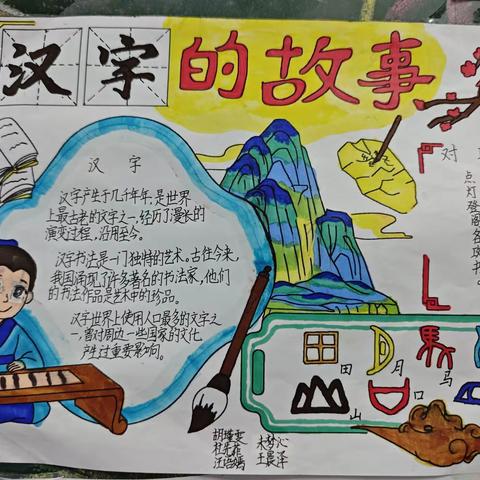 汉字的故事
汉字
汉字产生于几千年年,是世界
上最古老的文字之一,经历了漫长的
演变过程,沿用至今。
汉字书法是一门独特的艺术。古往今来,
我国涌现了许多著名的书法家,他们
的书法作品是艺术中的珍品。
汉字世界上使用人口最多的文字之
一,曾对周边一些国家的文化
产过重要影响。
对
点灯登阁各攻书。
田
月
马
山
口
胡瑾雯
王晨泽